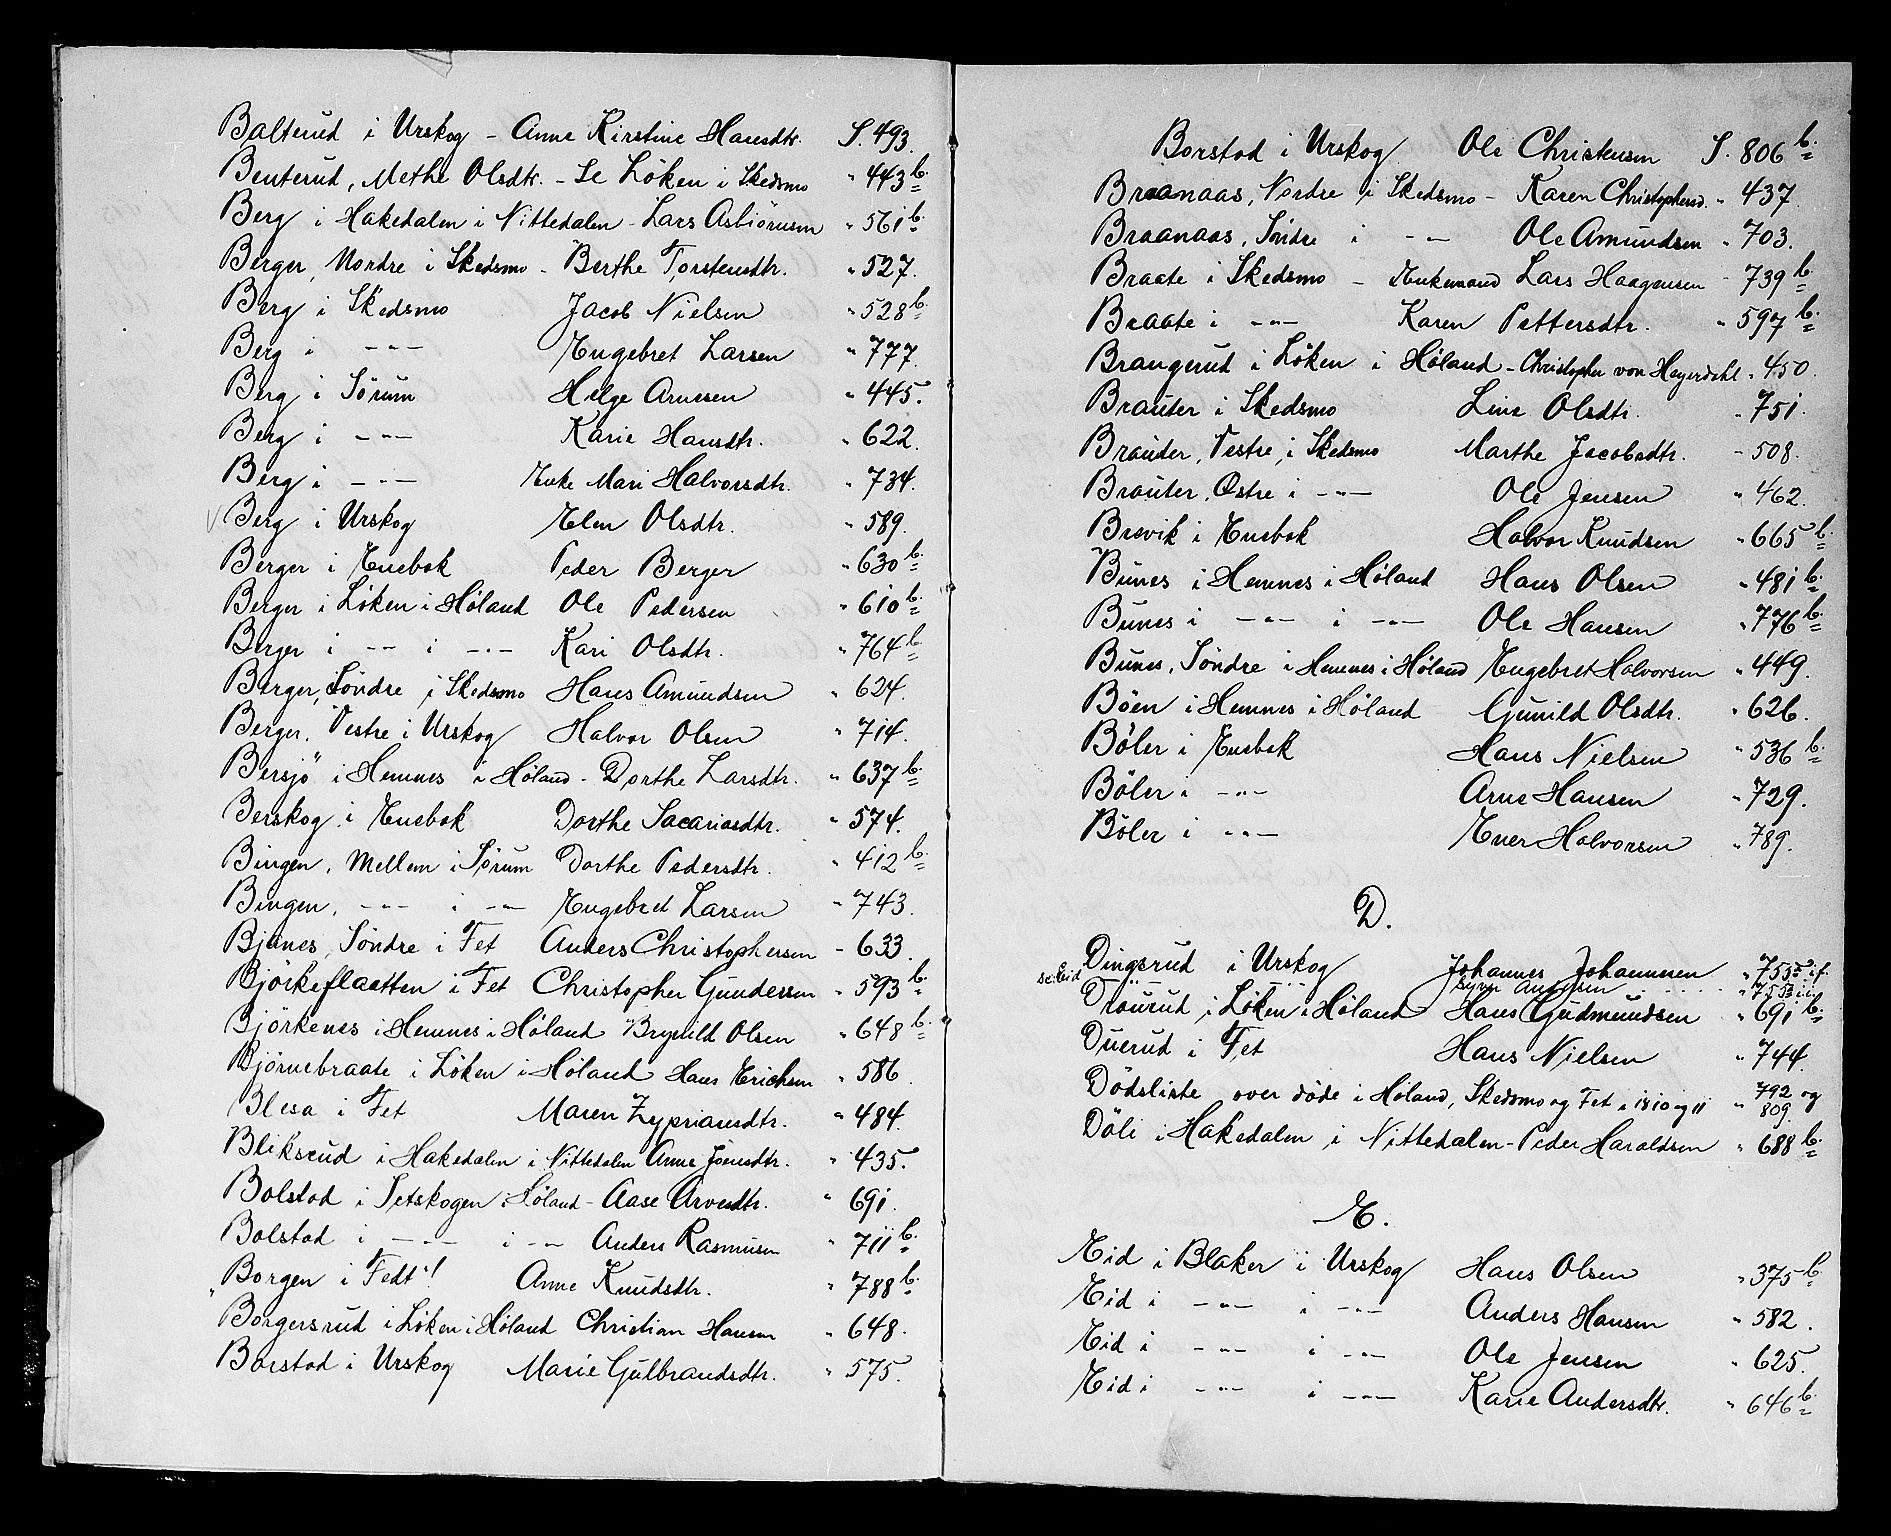 Balterud i Urskog - Anne Kirstine Hansdtr. S. 493.
Benterud, Methe Olsdtr. - Se Løken i Skedsmo " 443 b.
Berg i Hakedalen i Nittedalen - Lars Asbiörnsen " 561 b.
Berger, Nordre i Skedsmo - Berthe Torstensdtr. " 527.
Berg i Skedsmo Jacob Nielsen " 528 b.
Berg i -"- Engebret Larsen " 777.
Berg i Sørum Helge Arnesen " 445.
Berg i -"- Karie Hansdtr. " 622.
Berg i -"- Enke Mari Halvorsdtr. " 734.
Berg i Urskog Elen Olsdtr. " 589.
Berger i Enebak Peder Berger " 630 b.
Berger i Løken i Høland Ole Pedersen " 610 b.
Berger i -"- i -"- Kari Olsdtr. " 764 b.
Berger, Söndre i Skedsmo Hans Amundsen " 624.
Berger, Vestre i Urskog Halvor Olsen " 714.
Bersjö i Hemnes i Høland - Dorthe Larsdtr. " 637 b.
Berskog i Enebak Dorthe Sacariasdtr. " 574.
Bingen, Mellem i Sørum Dorthe Pedersdtr. " 412 b.
Bingen, -"- i -"- Engebret Larsen " 743.
Bjanes, Söndre i Fet Anders Christophersen - 633.
Björkeflaatten i Fet Christopher Gundersen " 593 b.
Björkenes i Hemnes i Høland Brynild Olsen " 648 b.
Bjørnebraate i Løken i Høland Hans Erichsen " 586.
Blesa i Fet Maren Zypriansdtr. " 484.
Bliksrud i Hakedalen i Nittedalen Anne Joensdtr. " 435.
Bolstad i Setskogen i Høland - Aase Arvesdtr. " 691.
Bolstad i -"- i -"- Anders Rasmusen " 711 b.
Borgen i Fedt! Anne Knudsdtr. " 788 b.
Borgersrud i Løken i Høland Christian Hansen " 648.
Borstad i Urskog Marie Gulbrandsdtr. " 575.
Borstad i Urskog Ole Christensen S. 806 b.
Braanaas, Nordre i Skedsmo - Karen Christophersd. " 437.
Braanaas, Söndre i -"- Ole Amundsen " 703.
Braate i Skedsmo - Enkemand Lars Haagensen - 739 b.
Braate i -"- Karen Pettersdtr. " 597 b.
Brangerud i Løken i Høland - Christopher von Heyerdahl " 450.
Brauter i Skedsmo Line Olsdtr. " 751.
Brauter, Vestre, i Skedsmo Marthe Jacobsdtr. - 508.
Brauter, Østre i -"- Ole Jensen " 462.
Brevik i Enebak Halvor Knudsen " 665 b.
Bunes i Hemnes i Høland Hans Olsen " 481 b.
Bunes i -"- i -"- Ole Hansen " 776 b.
Bunes, Söndre i Hemnes i Høland Engebret Halvorsen " 449.
Böen i Hemnes i Höland Gunild Olsdtr. " 626.
Böler i Enebak Hans Nielsen " 536 b.
Böler i -"- Arne Hansen " 729.
Böler i -"- Ener Halvorsen " 789.
D.
Dingsrud i Urskog Johannes Johannesen " 755
Draurud i Løken i Høland Hans Gudmundsen " 691 b.
Duerud i Fet Hans Nielsen " 744.
Dödsliste over döde i Høland, Skedsmo og Fet i 1810 og 11 " 792 og 809.
Döli i Hakedalen i Nittedalen - Peder Haraldsen " 688 b.
E.
Eid i Blaker i Urskog Hans Olsen " 375 b.
Eid i -"- i -"- Anders Hansen " 582.
Eid i -"- i -"- Ole Jensen " 625.
Eid i -"- i -"- Karie Andersdtr. " 646 b.